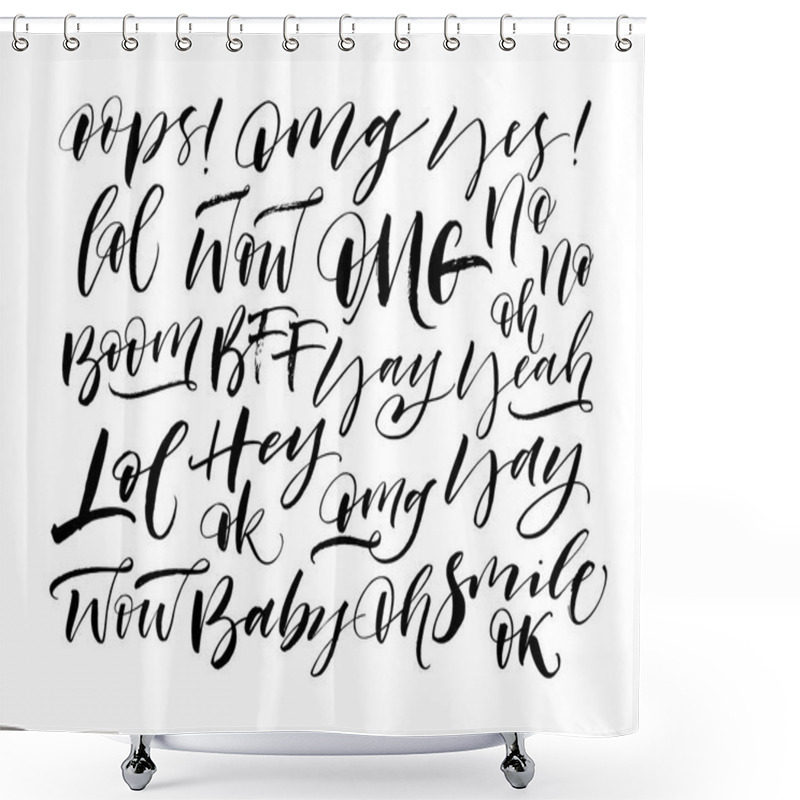 oops! omg yes!
lol wow OMG no
no
oh
BOOM BFF yay yeah
Lol Hey yay
ok omg
wow Baby Oh smile
OK